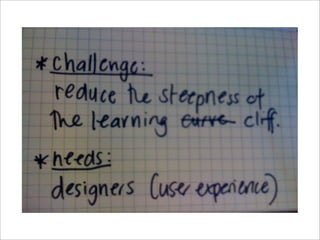 * challenge:
reduce the steepness of
the learning curve cliff.
* needs:
designers (user experience)